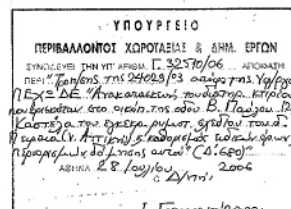 ΥΠΟΥΡΓΕΙΟ
ΠΕΡΙΒΑΛΛΟΝΤΟΣ ΧΩΡΟΤΑΞΙΑΣ & ΔΗΜ. ΕΡΓΩΝ
ΣΥΝΟΔΕΥΕΙ ΤΗΝ ΥΠ' ΑΡΙΘΜ. Γ. 32510/06 ΑΠΟΦΑΣΗ
ΠΕΡΙ "Τροπ/σης της 24029/03 απόφ. της Υφ/ργού
ΠΕΧΩΔΕ "Ανακατασκευή του διατηρ. κτιρίου
που βρίσκεται στο οικόπ. της οδού Β. Παύλου 12
Καστέλα του εγκεκρ. ρυμοτ. σχεδίου του Δ.
Πειραιά (Ν. Αττικής) & καθορισμός ειδικών όρων
περιορισμών δόμησης αυτού" (Δ' 680)"
ΑΘΗΝΑ 28 Ιουλίου 2006